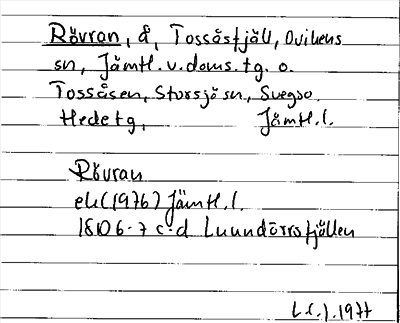 Rövran, å, Tossåsfjäll, Ovikens
sn, Jämtl.v.doms.tg. o.
Tossåsen, Storsjö sn, Svegso.
Hede tg, Jämtl.l.
Rövran
ek (1976) Jämtl.l.
18D6-7 c-d Lunndörrsfjällen
1977